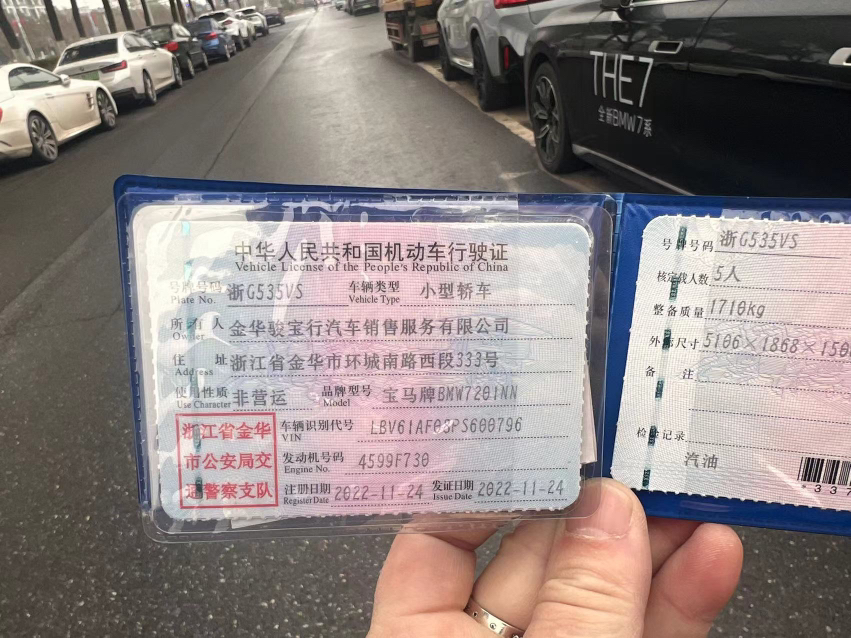 THE7
全新BMW7系
中华人民共和国机动车行驶证
Vehicle License of the People's Republic of China
号牌号码 浙G535VS 车辆类型 小型轿车
Plate No. Vehicle Type
所有人 金华骏宝行汽车销售服务有限公司
Owner
住址 浙江省金华市环城南路西段333号
Address
使用性质 非营运 品牌型号 宝马牌BMW7201NN
Use Character Model
浙江省金华
市公安局交
通警察支队
车辆识别代号 LBV61AF08PS600796
VIN
发动机号码 4599F730
Engine No.
注册日期 2022-11-24 发证日期 2022-11-24
Register Date Issue Date
号牌号码 浙G535VS
核定载人数 5人
整备质量 1710kg
外廓尺寸 5106×1868×150
备注
检验记录
汽油
*337